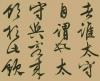 者誰太守
自謂也太
守與客來
飲於此飲